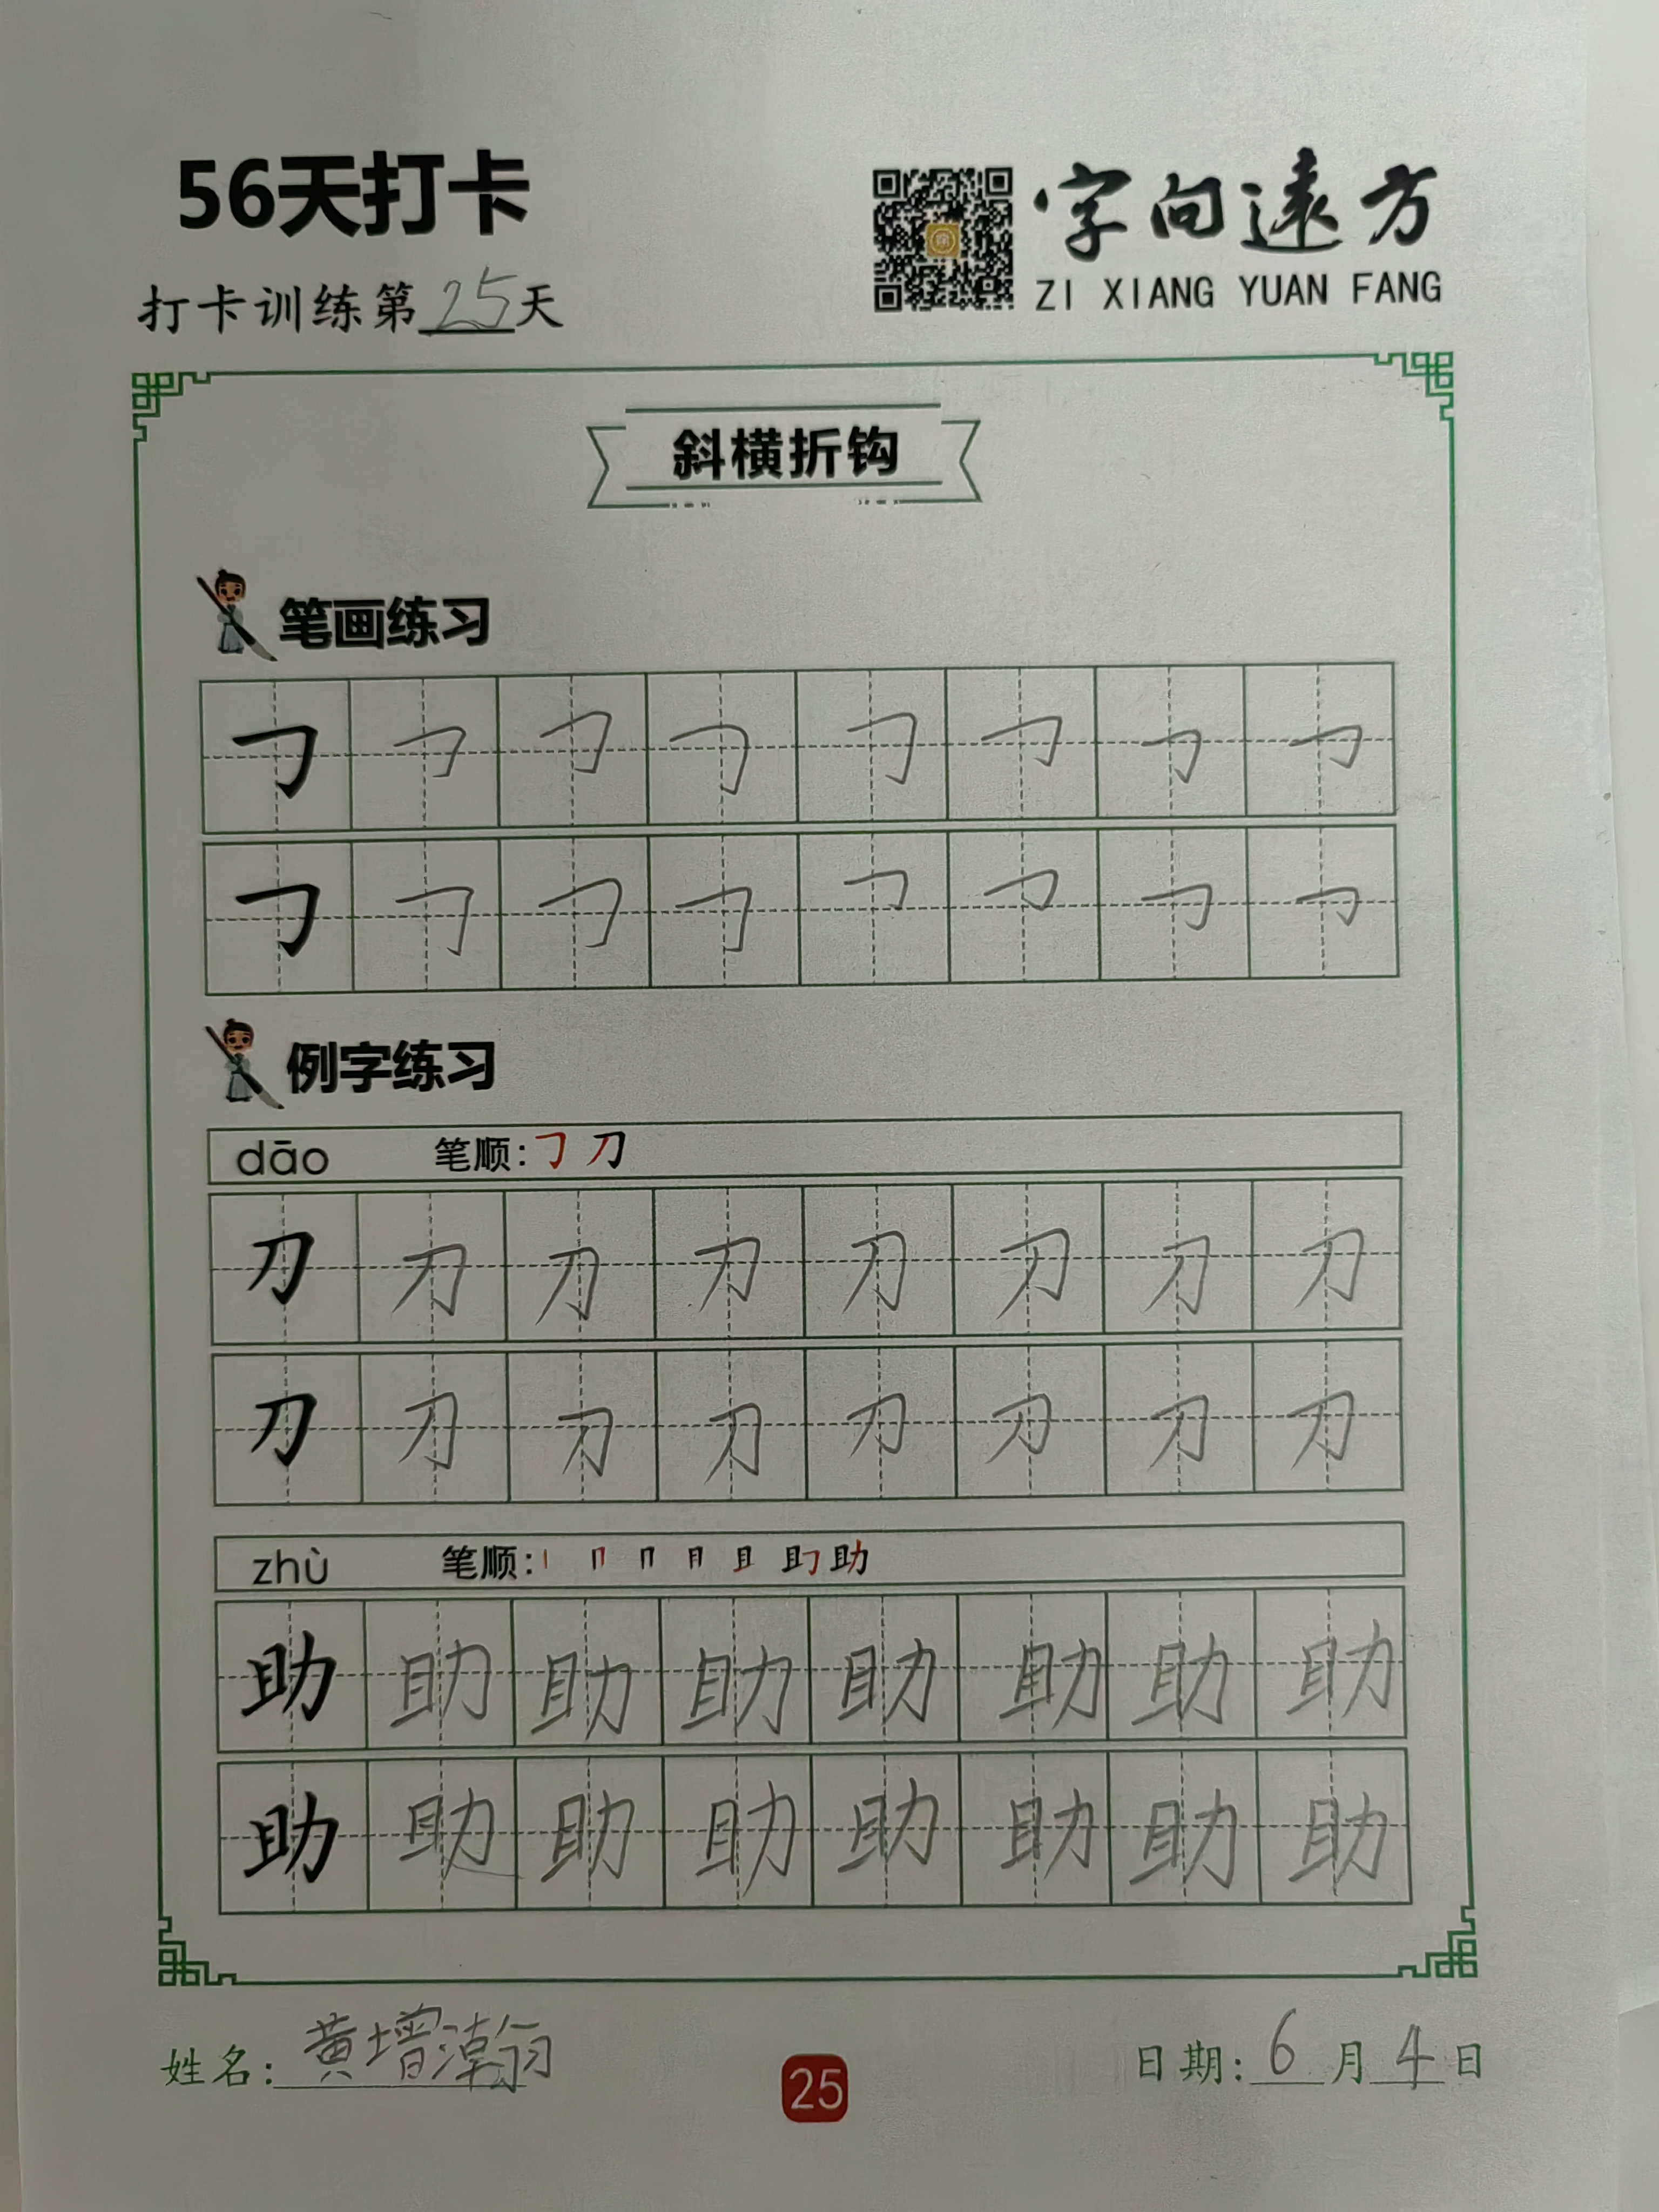 56天打卡
字向遠方
ZI XIANG YUAN FANG
打卡训练第25天
斜横折钩
笔画练习
𠃌 𠃌 𠃌 𠃌 𠃌 𠃌 𠃌 𠃌
𠃌 𠃌 𠃌 𠃌 𠃌 𠃌 𠃌 𠃌
例字练习
dāo 笔顺:𠃌 刀
刀 刀 刀 刀 刀 刀 刀 刀
刀 刀 刀 刀 刀 刀 刀 刀
zhù 笔顺:丨 冂 月 且 助
助 助 助 助 助 助 助 助
助 助 助 助 助 助 助 助
姓名:黄增瀚
25
日期:6月4日